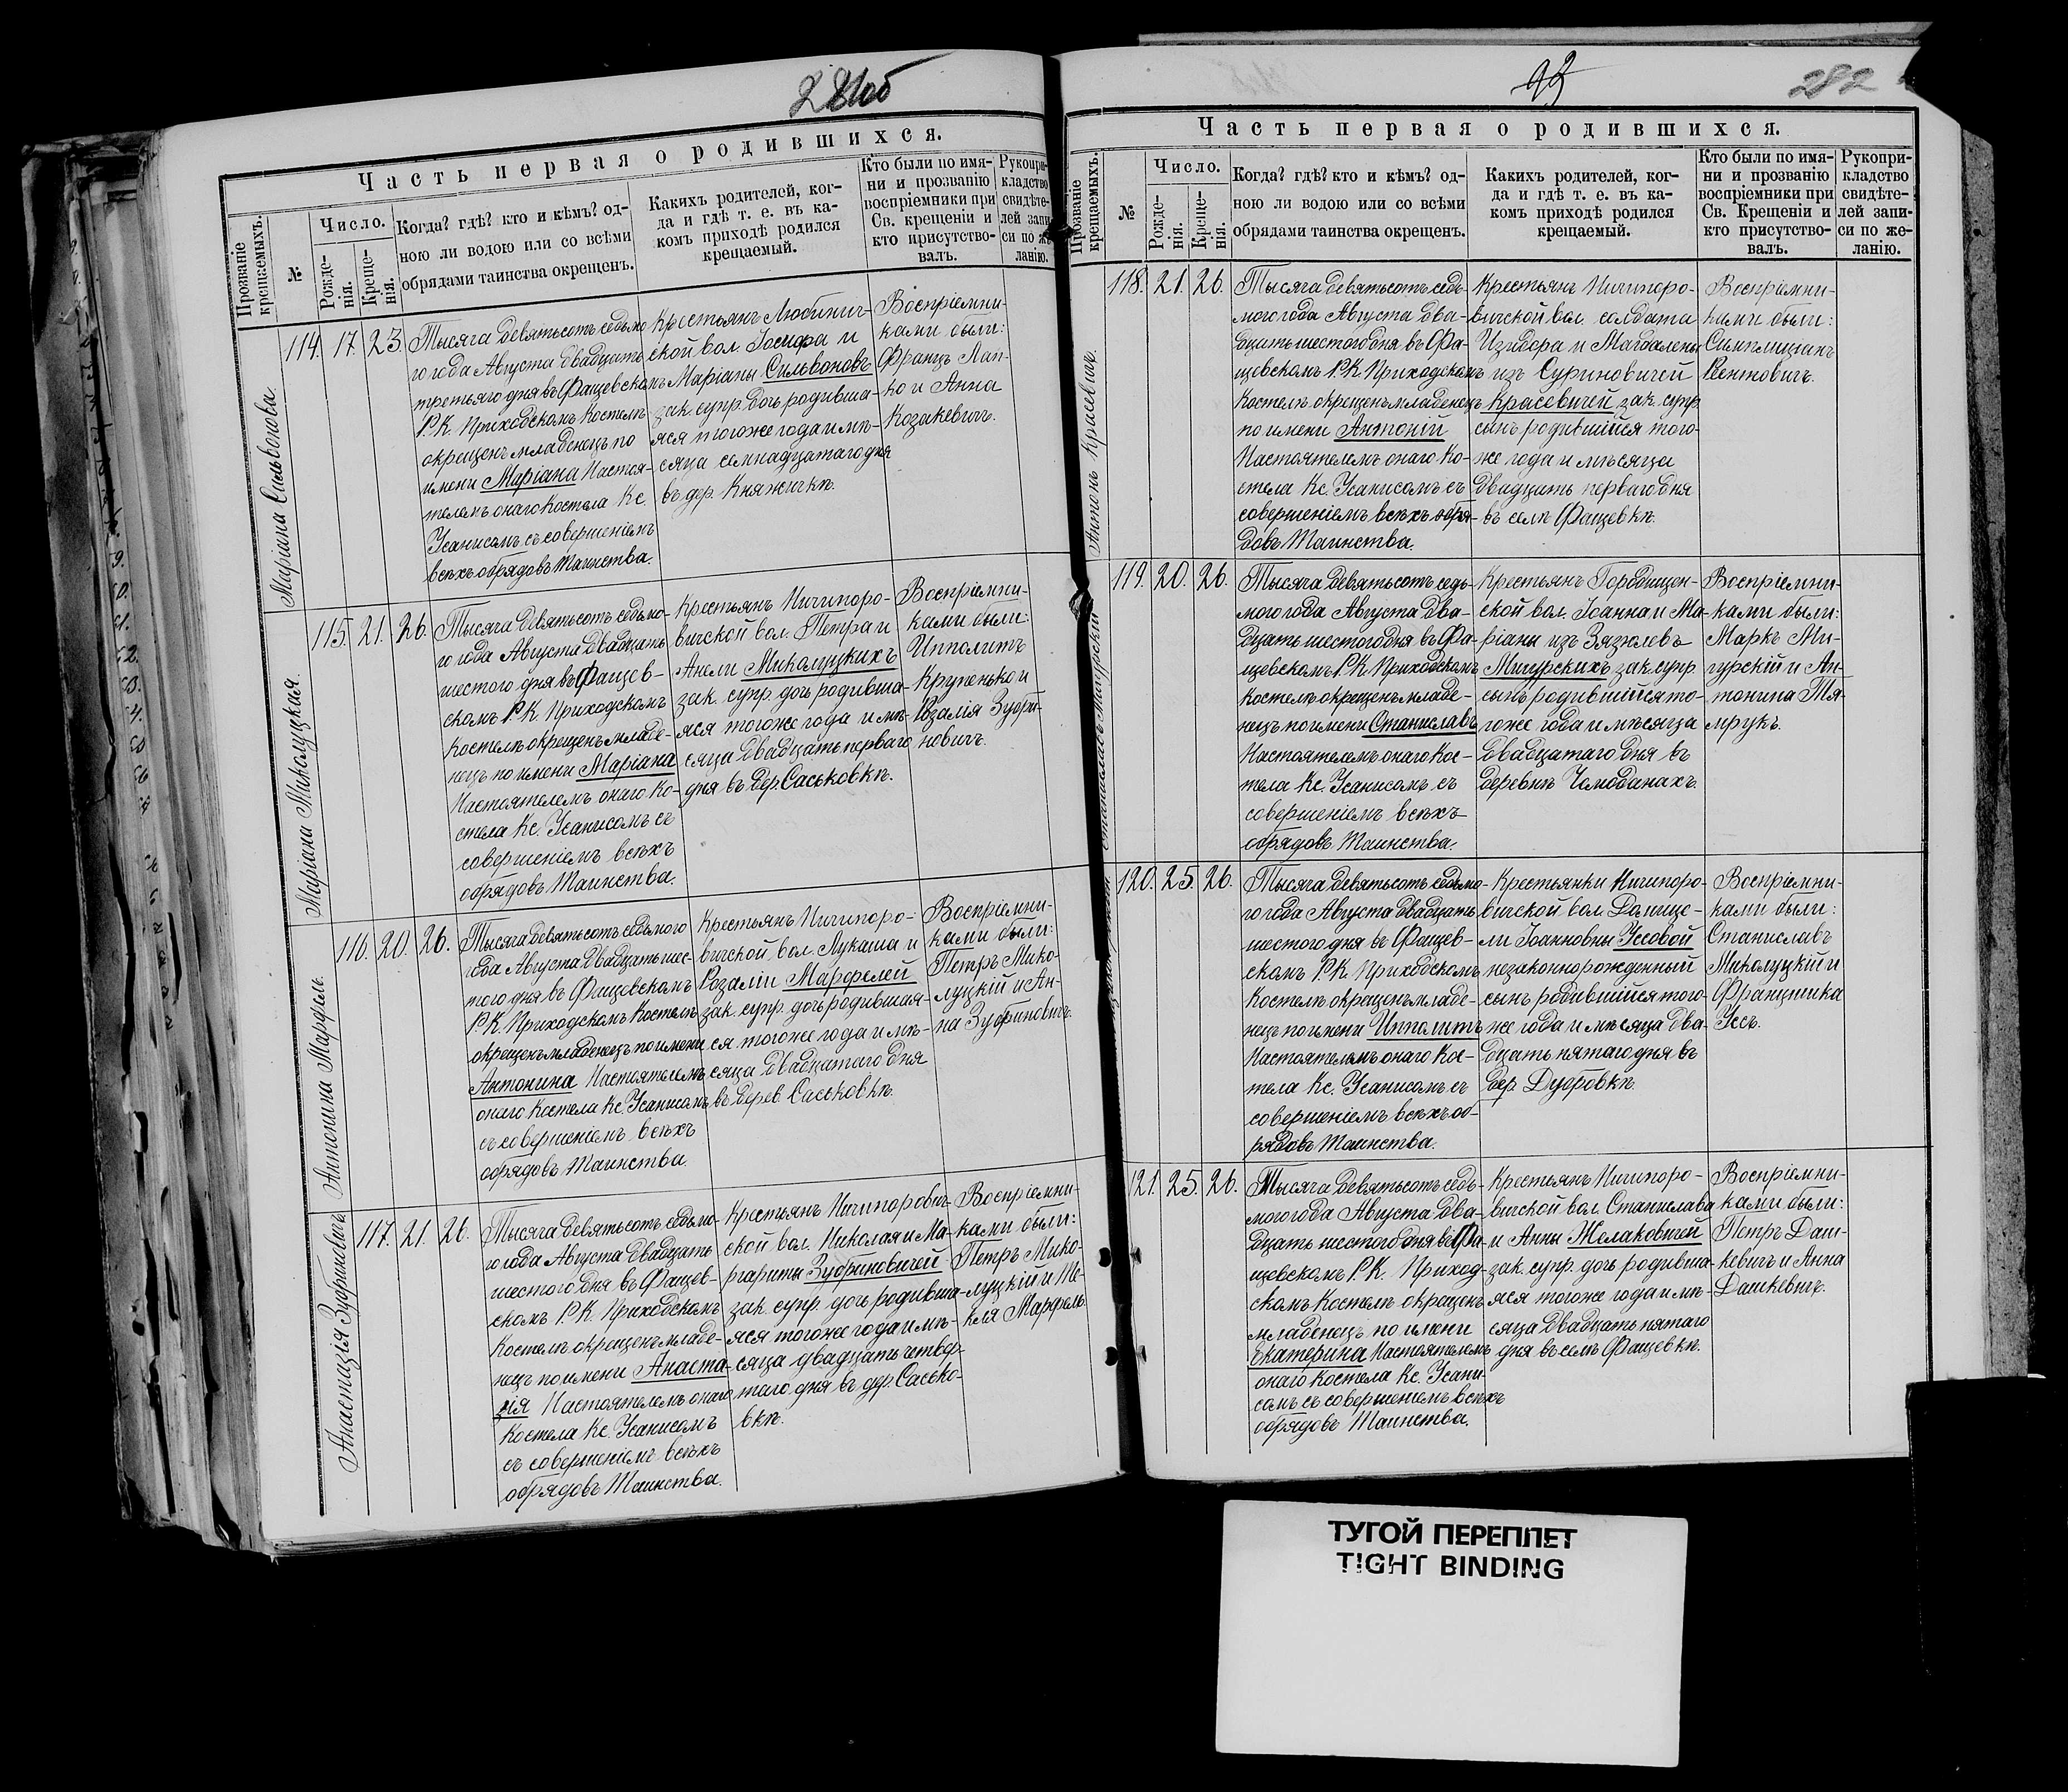 281об
Часть первая о родившихся.
Прозваніе крещаемыхъ.
№
Число.
Рожде-
нія.
Креще-
нія.
Когда? гдѣ? кто и кѣмъ? од-
ною ли водою или со всѣми
обрядами таинства окрещенъ.
Какихъ родителей, ког-
да и гдѣ т. е. въ ка-
комъ приходѣ родился
крещаемый.
Кто были по имя-
ни и прозванію
воспріемники при
Св. крещеніи и
кто присутство-
валъ.
Рукопри-
кладство
свидѣте-
лей запи-
си по же-
ланію.
Маріана Сильвонова.
114. 17. 23.
Тысяча девятьсотъ седьмо
го года Августа двадцать
третьяго дня въ Фащевскомъ
Р.К. Приходскомъ Костелѣ
окрещенъ младенецъ по
имени Маріана Настоя-
телемъ онаго Костела Кс.
Усанисомъ съ совершеніемъ
всѣхъ обрядовъ Таинства.
Крестьянъ Любинич-
ской вол. Іосифа и
Маріаны Сильвоновъ
зак. супр. дочь родивша-
яся того же года и мѣ-
сяца семнадцатаго дня
въ дер. Княжичкѣ.
Воспріемни-
ками были:
Францъ Лап-
ко и Анна
Козакевичъ.
Маріана Миколуцкая.
115. 21. 26.
Тысяча девятьсотъ седьмо-
го года Августа двадцать
шестого дня въ Фащев-
скомъ Р.К. Приходскомъ
Костелѣ окрещенъ младе-
нецъ по имени Маріана
Настоятелемъ онаго Ко-
стела Кс. Усанисомъ съ
совершеніемъ всѣхъ
обрядовъ Таинства.
Крестьянъ Ничипоро-
вичской вол. Петра и
Анели Миколуцкихъ
зак. супр. дочь родивша-
яся того же года и мѣ-
сяца двадцать перваго
дня въ дер. Саськовкѣ.
Воспріемни-
ками были:
Ипполитъ
Крупенько и
Розалія Зубри-
новичъ.
Антонина Марфель.
116. 20. 26.
Тысяча девятьсотъ седьмого
года Августа двадцать шес-
того дня въ Фащевскомъ
Р.К. Приходскомъ Костелѣ
окрещенъ младенецъ по имени
Антонина Настоятелемъ
онаго Костела Кс. Усанисомъ
съ совершеніемъ всѣхъ
обрядовъ Таинства.
Крестьянъ Ничипоро-
вичской вол. Лукаша и
Розаліи Марфелей
зак. супр. дочь родившая-
ся того же года и мѣ-
сяца двадцатаго дня
въ дерев. Саськовкѣ.
Воспріемни-
ками были:
Петръ Мико-
луцкій и Ан-
на Зубриновичъ.
Анастазія Зубриновичъ
117. 21. 26.
Тысяча девятьсотъ седьмо-
го года Августа двадцать
шестого дня въ Фащев-
скомъ Р.К. Приходскомъ
Костелѣ окрещенъ младе-
нецъ по имени Анаста-
зія Настоятелемъ онаго
Костела Кс. Усанисомъ
съ совершеніемъ всѣхъ
обрядовъ Таинства.
Крестьянъ Ничипорович-
ской вол. Николая и Ма-
ргариты Зубриновичей
зак. супр. дочь родивша-
яся того же года и мѣ-
сяца двадцать четвер-
таго дня въ дер. Сасько-
вкѣ.
Воспріемни-
ками были:
Петръ Мико-
луцкій и Те-
кля Марфель.
93
282
Часть первая о родившихся.
Прозваніе крещаемыхъ.
№
Число.
Рожде-
нія.
Креще-
нія.
Когда? гдѣ? кто и кѣмъ? од-
ною ли водою или со всѣми
обрядами таинства окрещенъ.
Какихъ родителей, ког-
да и гдѣ т. е. въ ка-
комъ приходѣ родился
крещаемый.
Кто были по имя-
ни и прозванію
воспріемники при
Св. Крещеніи и
кто присутство-
валъ.
Рукопри-
кладство
свидѣте-
лей запи-
си по же-
ланію.
Антонъ Красевичъ.
118. 21. 26.
Тысяча девятьсотъ седь-
мого года Августа два-
дцать шестого дня въ Фа-
щевскомъ Р.К. Приходскомъ
Костелѣ окрещенъ младенецъ
по имени Антоній
Настоятелемъ онаго Ко-
стела Кс. Усанисомъ съ
совершеніемъ всѣхъ обря-
довъ Таинства.
Крестьянъ Ничипоро-
вичской вол. солдата
Изидора и Магдалены
изъ Суриновичей
Красевичей зак. супр.
сынъ родившійся того-
же года и мѣсяца
двадцать перваго дня
въ селѣ Фащевкѣ.
Воспріемни-
ками были:
Симплиціанъ
Вентовичъ.
Станиславъ Мигурскій
119. 20. 26.
Тысяча девятьсотъ седь-
мого года Августа два-
дцать шестого дня въ Фа-
щевскомъ Р.К. Приходскомъ
Костелѣ окрещенъ младе-
нецъ по имени Станиславъ
Настоятелемъ онаго Кос-
тела Кс. Усанисомъ съ
совершеніемъ всѣхъ
обрядовъ Таинства.
Крестьянъ Городищен-
ской вол. Іоанна и Ма-
ріаны изъ Зязюлевъ
Мигурскихъ зак. супр.
сынъ родившійся то-
гоже года и мѣсяца
двадцатаго дня въ
деревнѣ Чемоданахъ.
Воспріемни-
ками были:
Маркъ Ми-
гурскій и Ан-
тонина Тя-
мрукъ.
120. 25. 26.
Тысяча девятьсотъ седьмо-
го года Августа двадцать
шестого дня въ Фащев-
скомъ Р.К. Приходскомъ
Костелѣ окрещенъ младе-
нецъ по имени Ипполитъ
Настоятелемъ онаго Кос-
тела Кс. Усанисомъ съ
совершеніемъ всѣхъ об-
рядовъ Таинства.
Крестьянки Ничипоро-
вичской вол. Домице-
ли Іоанновны Уссовой
незаконнорожденный
сынъ родившійся того-
же года и мѣсяца два-
дцать пятаго дня въ
дер. Дубровкѣ.
Воспріемни-
ками были:
Станиславъ
Миколуцкій и
Францишка
Уссъ.
121. 25. 26.
Тысяча девятьсотъ седь-
мого года Августа два-
дцать шестого дня въ Фа-
щевскомъ Р.К. Приход-
скомъ Костелѣ окрещенъ
младенецъ по имени
Екатерина Настоятелемъ
онаго Костела Кс. Усани-
сомъ съ совершеніемъ всѣхъ
обрядовъ Таинства.
Крестьянъ Ничипоро-
вичской вол. Станислава
и Анны Желаковичей
зак. супр. дочь родивша-
яся того же года и мѣ-
сяца двадцать пятаго
дня въ селѣ Фащевкѣ.
Воспріемни-
ками были:
Петръ Даш-
кевичъ и Анна
Дашкевичъ.
ТУГОЙ ПЕРЕПЛЕТ
TIGHT BINDING